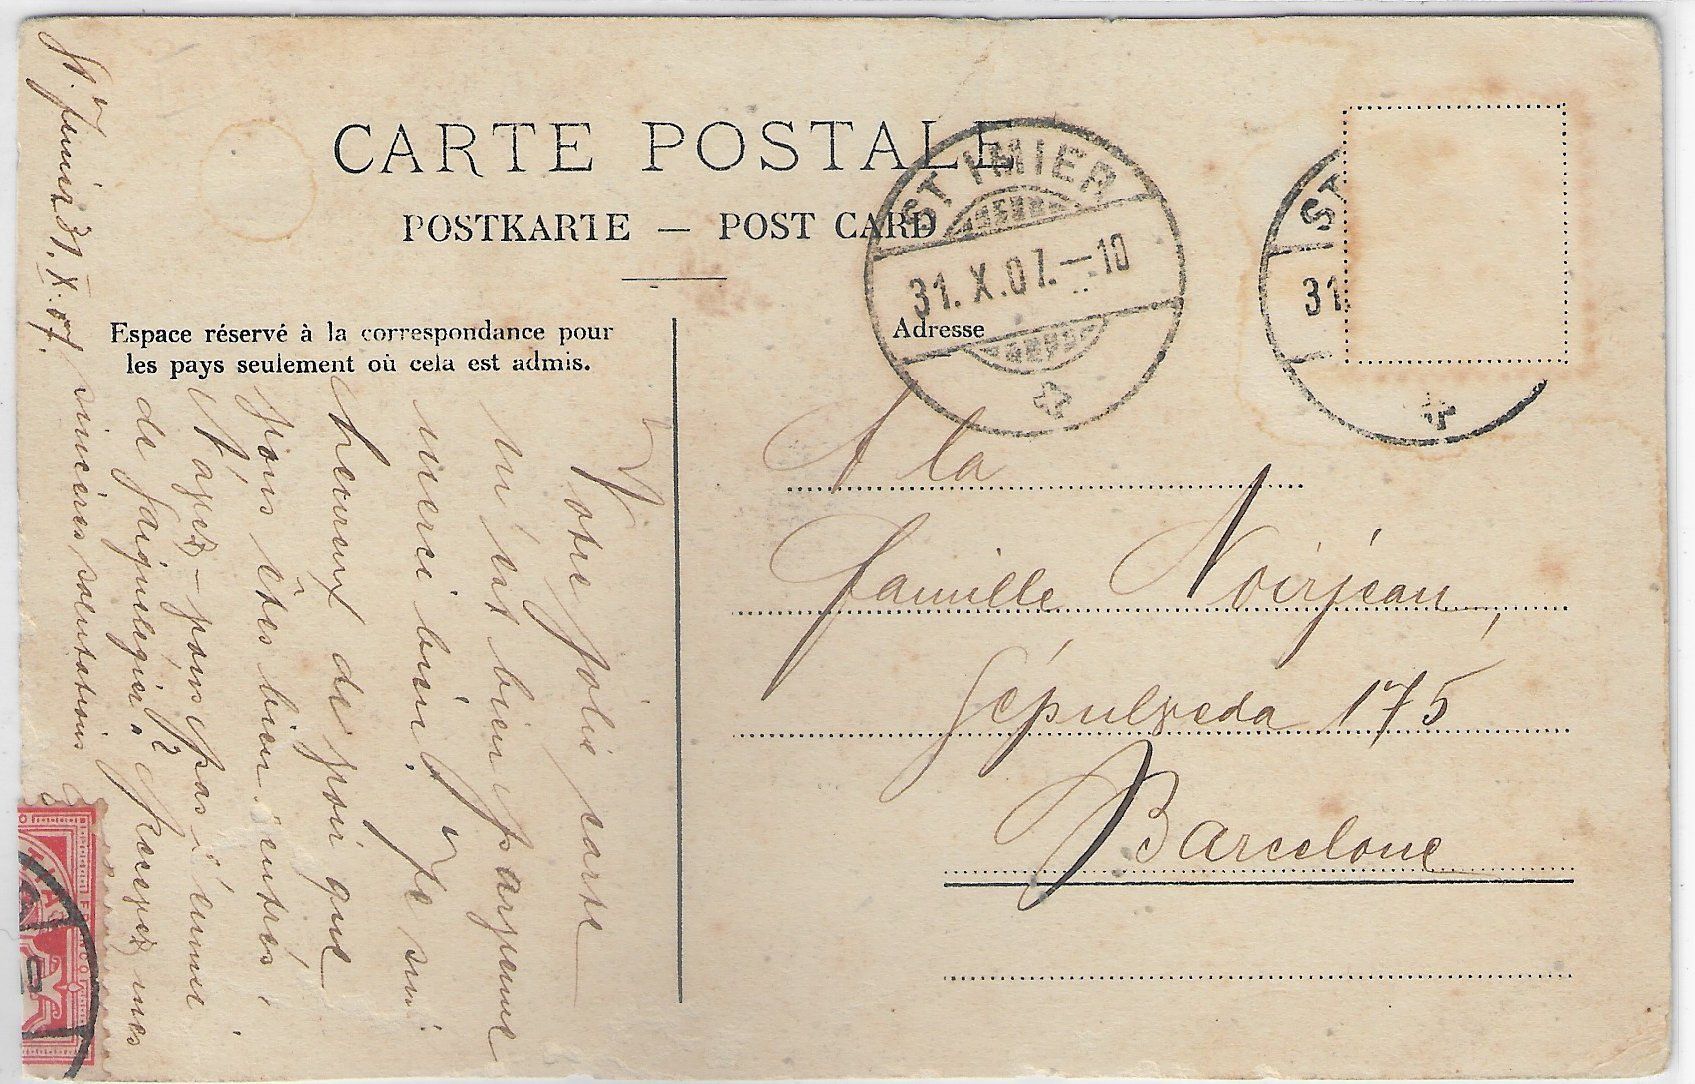 CARTE POSTALE
POSTKARTE — POST CARD
Espace réservé à la correspondance pour
les pays seulement où cela est admis.
Adresse
ST IMIER
31.X.07.—10
ST
31
A la
famille Noirjean,
Sépulveda 175
Barcelone
St. Imier 31.X.07.
Votre jolie carte
m'est bien parvenue
merci bien. Je suis
heureux de voir que
vous êtes bien rentrés,
N'ayez-vous pas l'ennui
de Saignelégier? Recevez mes
sincères salutations
FRANCO
10